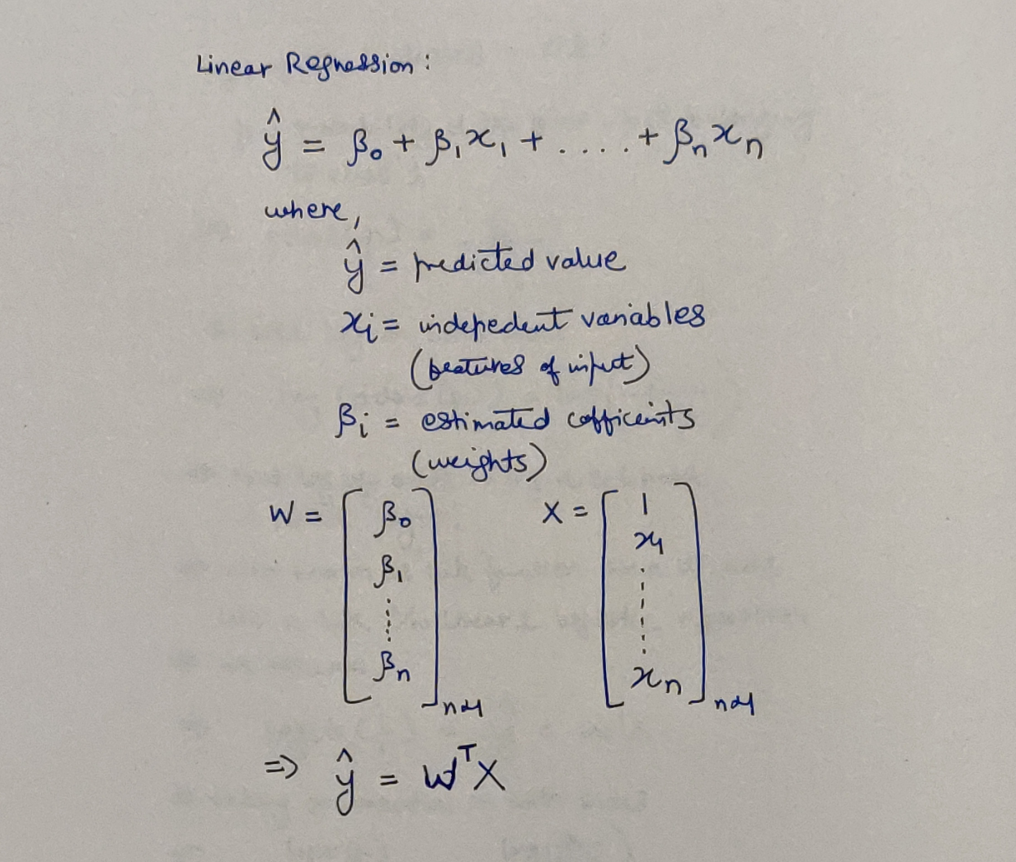 Linear Regression :
ŷ = β₀ + β₁x₁ + .... + βₙxₙ
where,
ŷ = predicted value
xᵢ = indepedent variables
(features of input)
βᵢ = estimated cofficeints
(weights)
W = [β₀ β₁ ⋮ βₙ]ₙₓ₁ X = [1 x₁ ⋮ xₙ]ₙₓ₁
=> ŷ = WᵀX